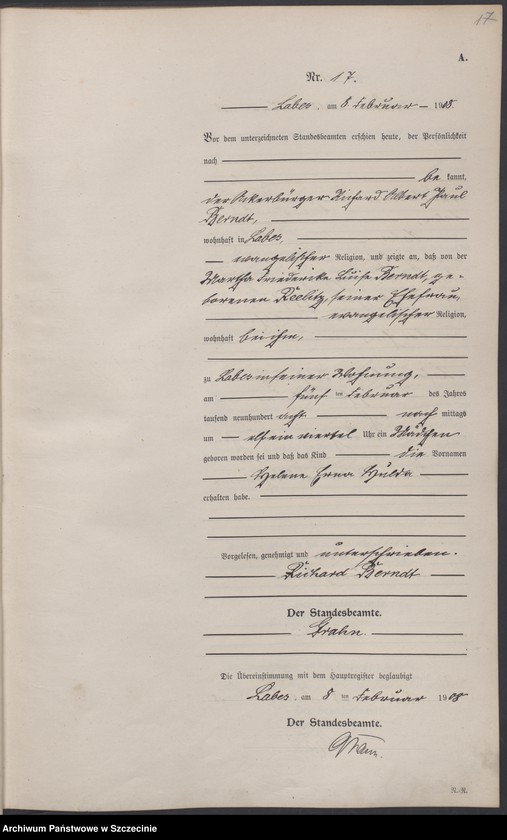 17
A.
Nr. 17.
Labes, am 8. Februar 1908.
Vor dem unterzeichneten Standesbeamten erschien heute, der Persönlichkeit
nach
be kannt,
der Ackerbürger Richard Albert Paul
Berndt,
wohnhaft in Labes,
evangelischer Religion, und zeigte an, daß von der
Martha Friederike Luise Berndt, ge-
borenen Reelitz, seiner Ehefrau,
evangelischer Religion,
wohnhaft bei ihm,
zu Labes in seiner Wohnung,
am fünf ten Februar des Jahres
tausend neunhundert acht nach mittags
um elf ein viertel Uhr ein Mädchen
geboren worden sei und daß das Kind die Vornamen
Helene Erna Hulda
erhalten habe.
Vorgelesen, genehmigt und unterschrieben.
Richard Berndt
Der Standesbeamte.
Grahn
Die Übereinstimmung mit dem Hauptregister beglaubigt
Labes, am 8 ten Februar 1908
Der Standesbeamte.
Grahn.
Archiwum Państwowe w Szczecinie